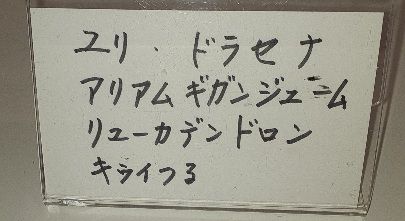 ユリ ・ ドラセナ
アリアム ギガンジューム
リューカデンドロン
キライつる